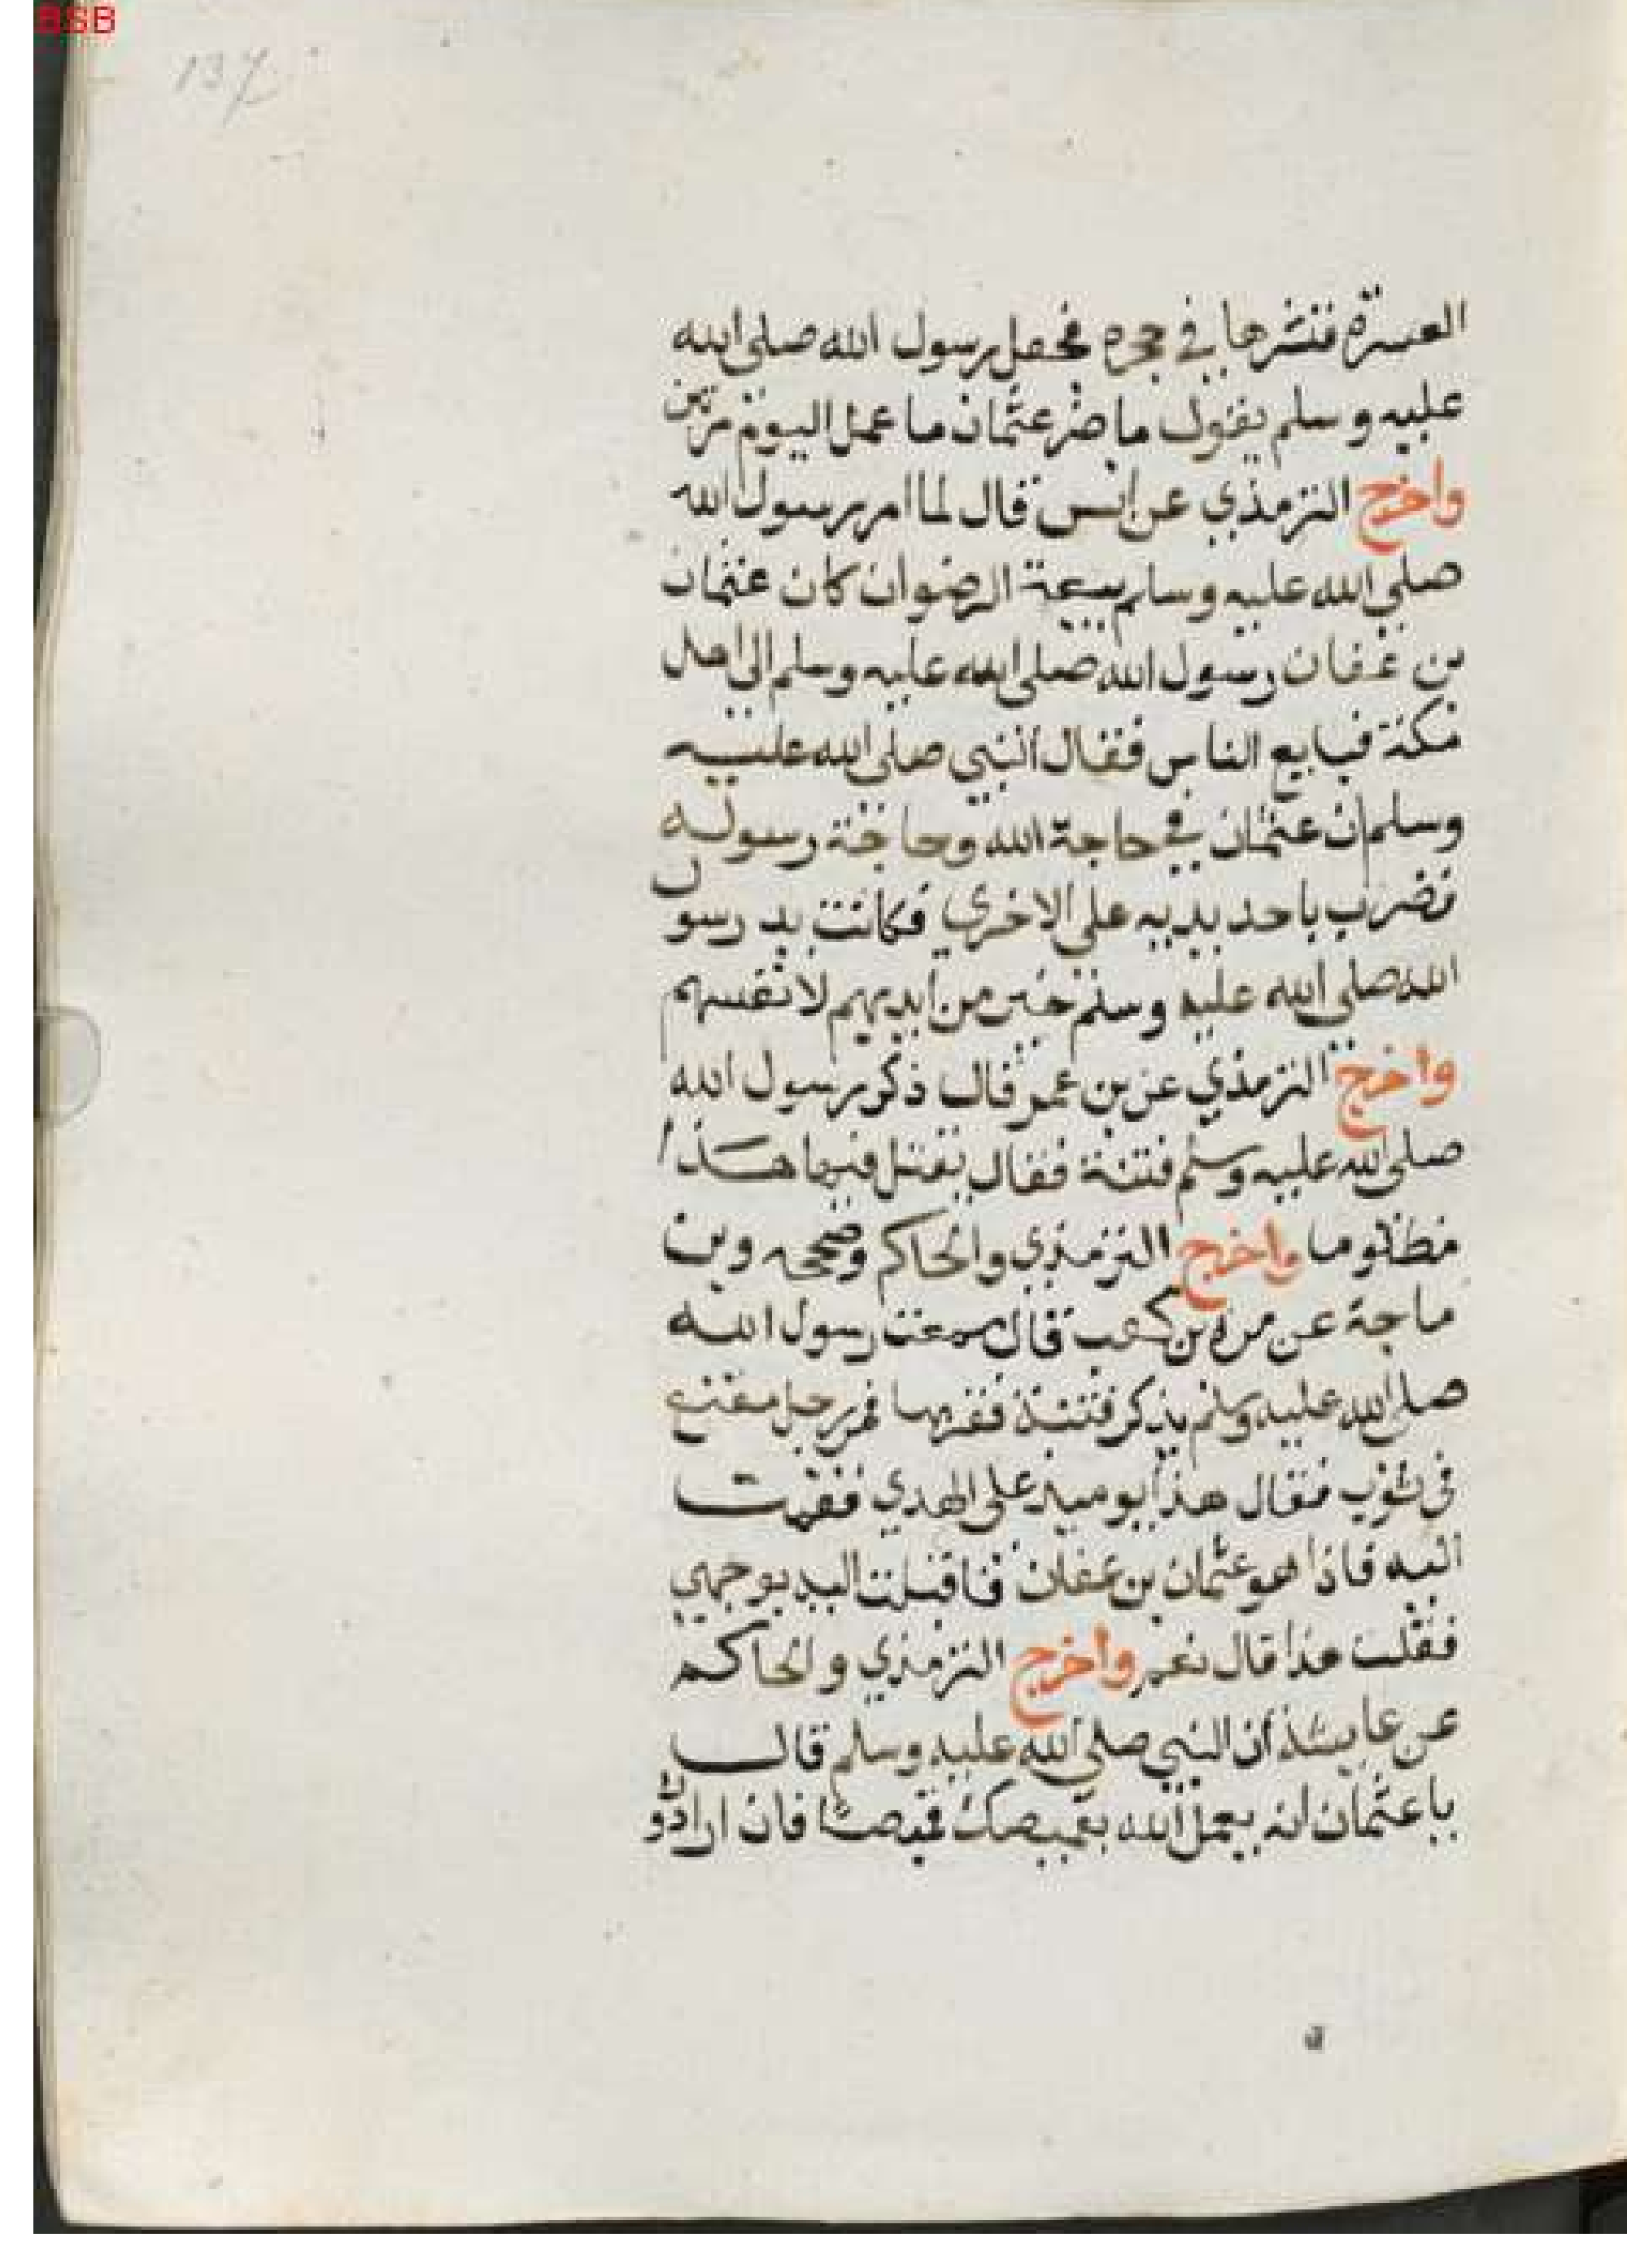 BSB
137
العسرة فنثرها في حجره فجعل رسول الله صلى الله
عليه وسلم يقول ما ضر عثمان ما عمل اليوم مرتين
واخرج الترمذي عن انس قال لما امر رسول الله
صلى الله عليه وسلم ببيعة الرضوان كان عثمان
بن عفان رسول الله صلى الله عليه وسلم الى اهل
مكة فبايع الناس فقال النبي صلى الله عليه
وسلم ان عثمان في حاجة الله وحاجة رسوله
فضرب باحد يديه على الاخري فكانت يد رسول
الله صلى الله عليه وسلم خير من ايديهم لانفسهم
واخرج الترمذي عن بن عمر قال ذكر رسول الله
صلى الله عليه وسلم فتنة فقال يقتل فيها هذا
مظلوما واخرج الترمذي والحاكم وصححه وبن
ماجة عن مرة بن كعب قال سمعت رسول الله
صلى الله عليه وسلم يذكر فتنة فقربها فمر رجل مقنع
في ثوب فقال هذا يوميذ على الهدي فقمت
اليه فاذا هو عثمان بن عفان فاقبلت اليه بوجهي
فقلت هذا قال نعم واخرج الترمذي والحاكم
عن عايشة ان النبي صلى الله عليه وسلم قال
ياعثمان انه يعمل الله بقميصك قميصا فان ارادو